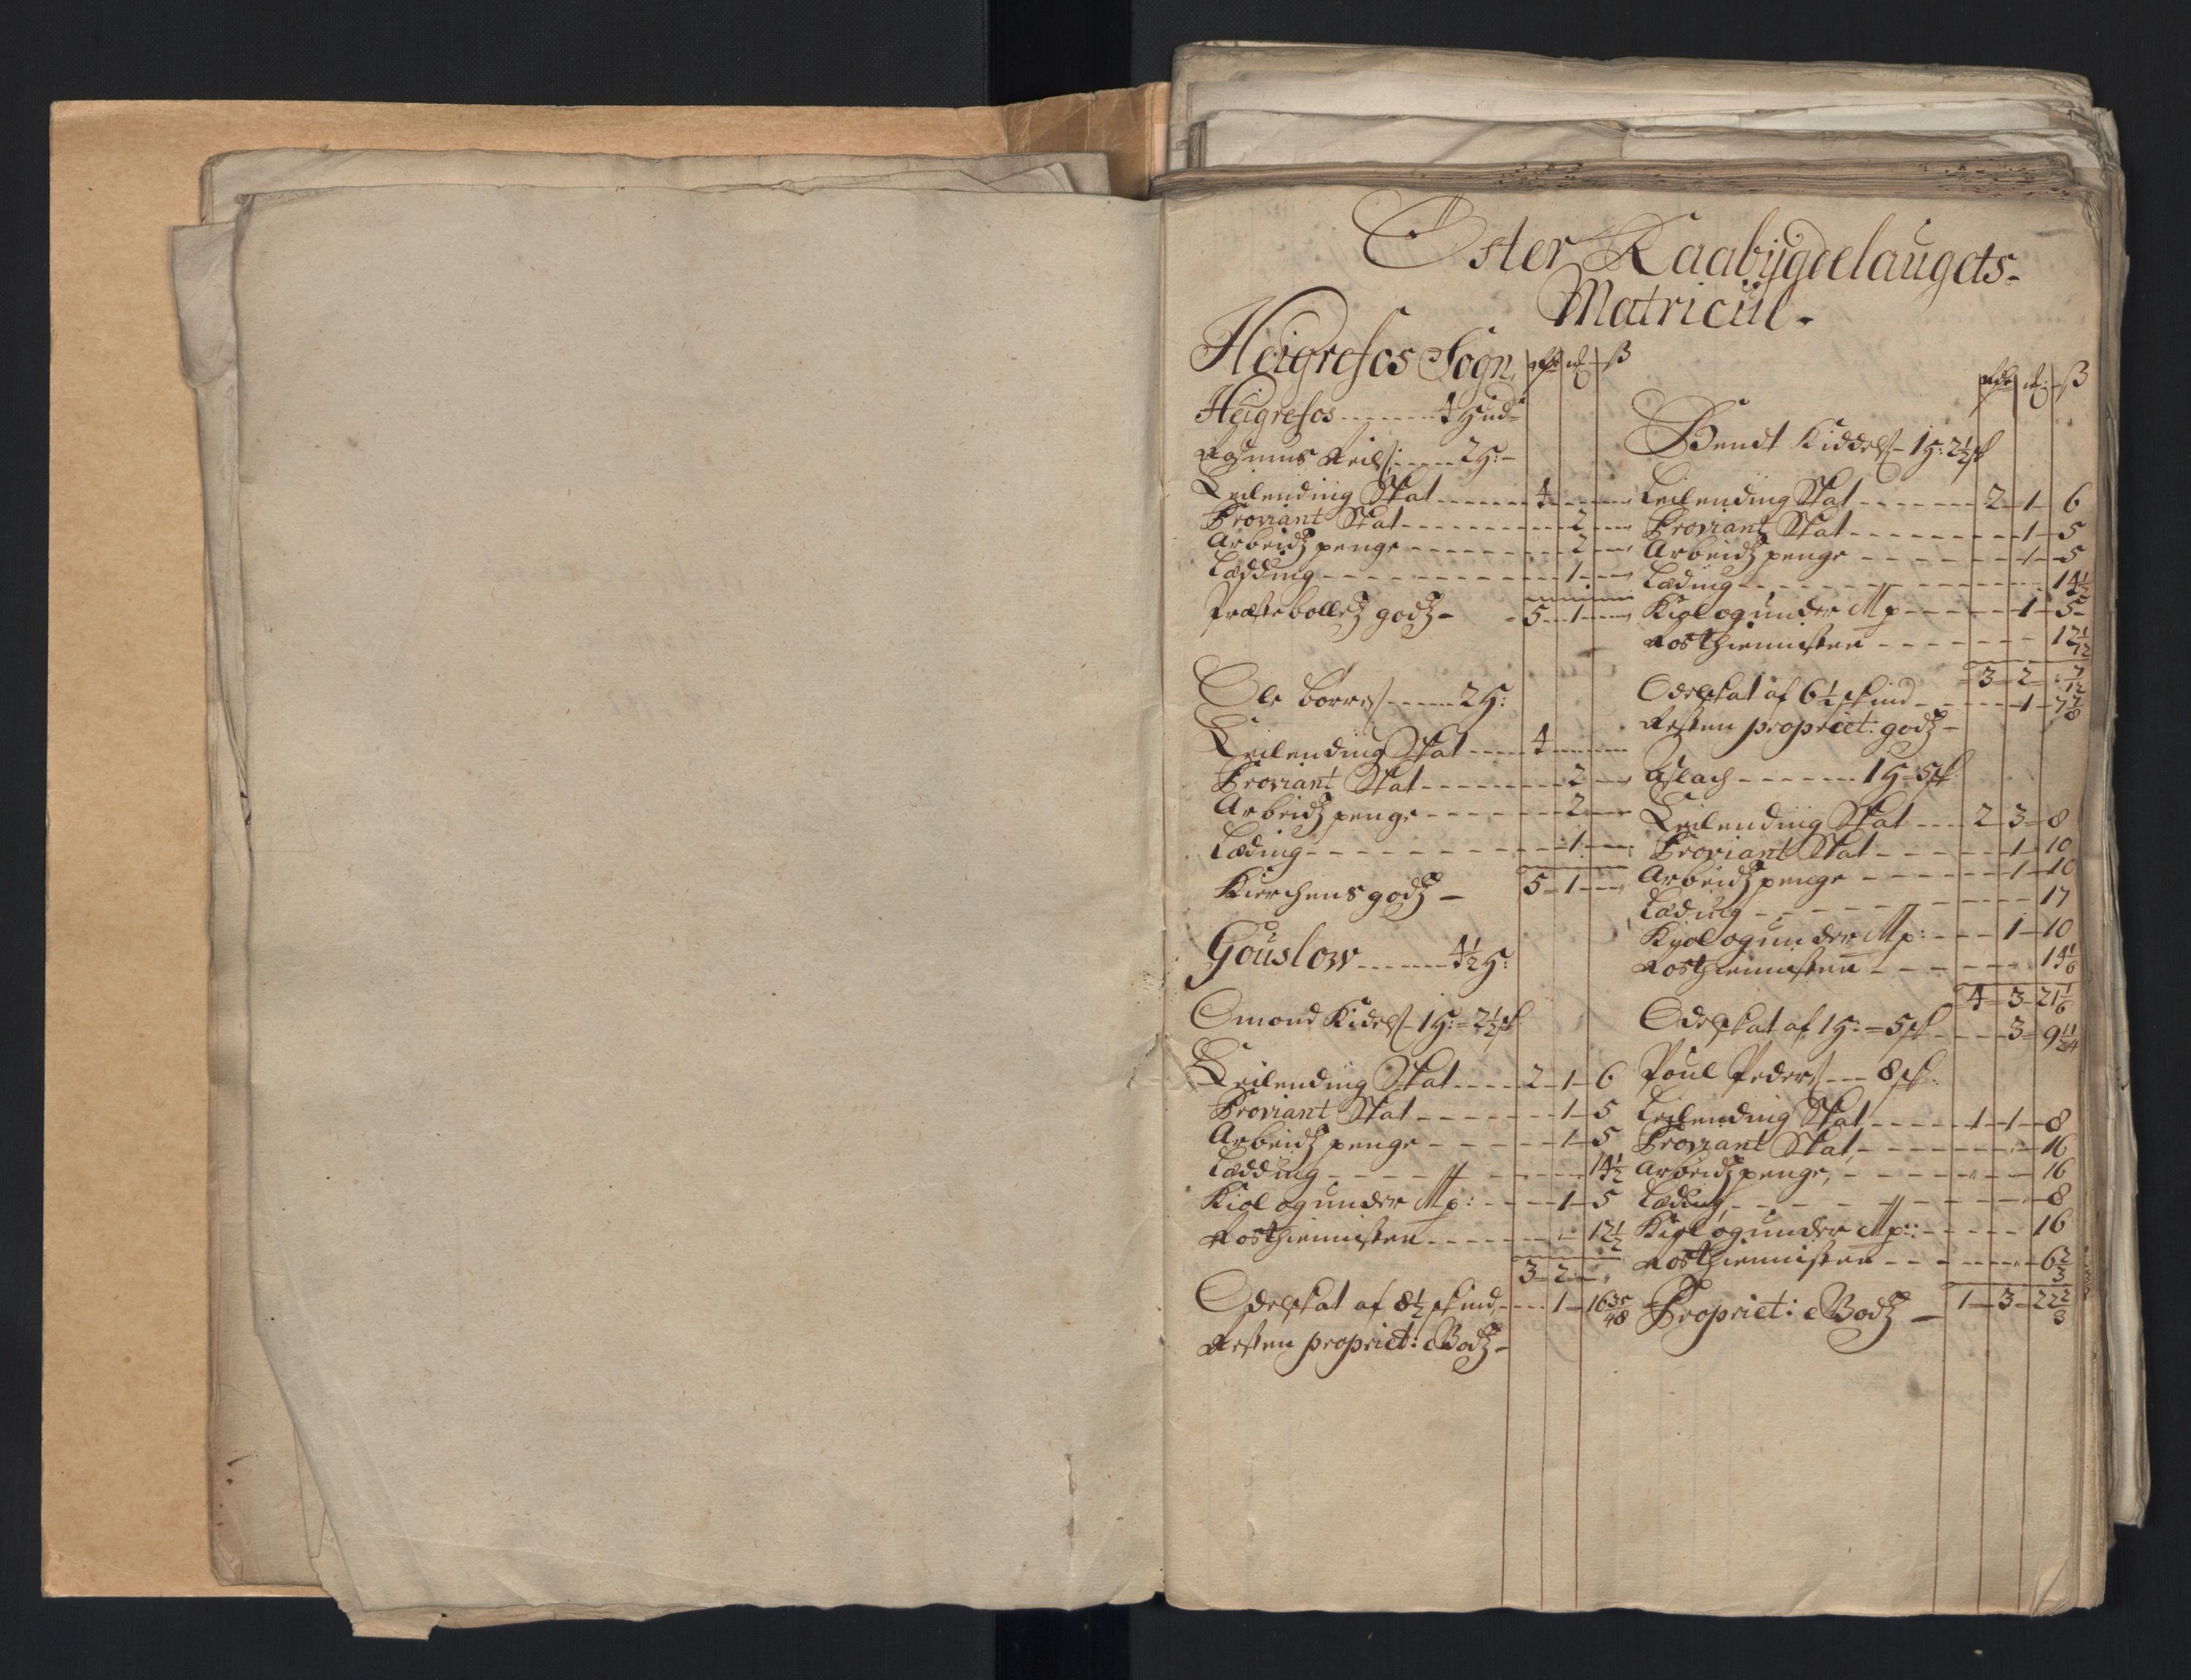 Öster Raabÿgdelaugets-
Matricul-
Heigrefos Sogn Rdr mk ß
Heigrefos 4 Hud
Rasmus Neils: 2 H:
Leilending Skat 4
Proviant Skat 2
Arbeidz penge 2
Lædding 1
Præstebolletz godz - 5 - 1
Ole Børres 2 H:
Leilending Skat 4
Proviant Skat 2
Arbeidz penge 2
Læding 1
Kierchens godz - 5 - 1
Gouslow 4½ H:
Omond Kidels - 1 H: 2½ sk
Leilending Skat 2 - 1 - 6
Proviant Skat 1 - 5
Arbeidz penge 1 - 5
Lædding 14½
Kiol og under M p: 1 - 5
Rosthienisten 12½
3 - 2 -
Odelskat af 8½ skind 1 - 16 35/48
Resten propriet: Godz -
Rdr mk ß
Bendt Kiddels - 1 H: 2½ sk
Leilending Skat 2 - 1 - 6
Proviant Skat 1 - 5
Arbeidz penge 1 - 5
Læding 14½
Kiol og under M p 1 - 5
Rosthienisten 12 1/12
3 - 2 - 7/12
Odelskat af 6½ skind 1 - 7 7/8
Resten propriet: godz -
Aslach 1 H - 5 sk
Leilending Skat 2 - 3 - 8
Proviant Skat 1 - 10
Arbeidz penge 1 - 10
Læding 17
Kyol og under M p: 1 - 10
Rosthienisten 14 1/6
4 - 3 - 21 1/6
Odelskat af 1 H: = 5 sk 3 - 9 11/24
Poul Peders 8 sk:
Leilending Skat 1 - 1 - 8
Proviant Skat 16
Arbeidz penge, 16
Læding, 8
Kiol og under M p: 16
Rosthienisten 6 2/3
Propriet: Godz - 1 - 3 - 22 2/3